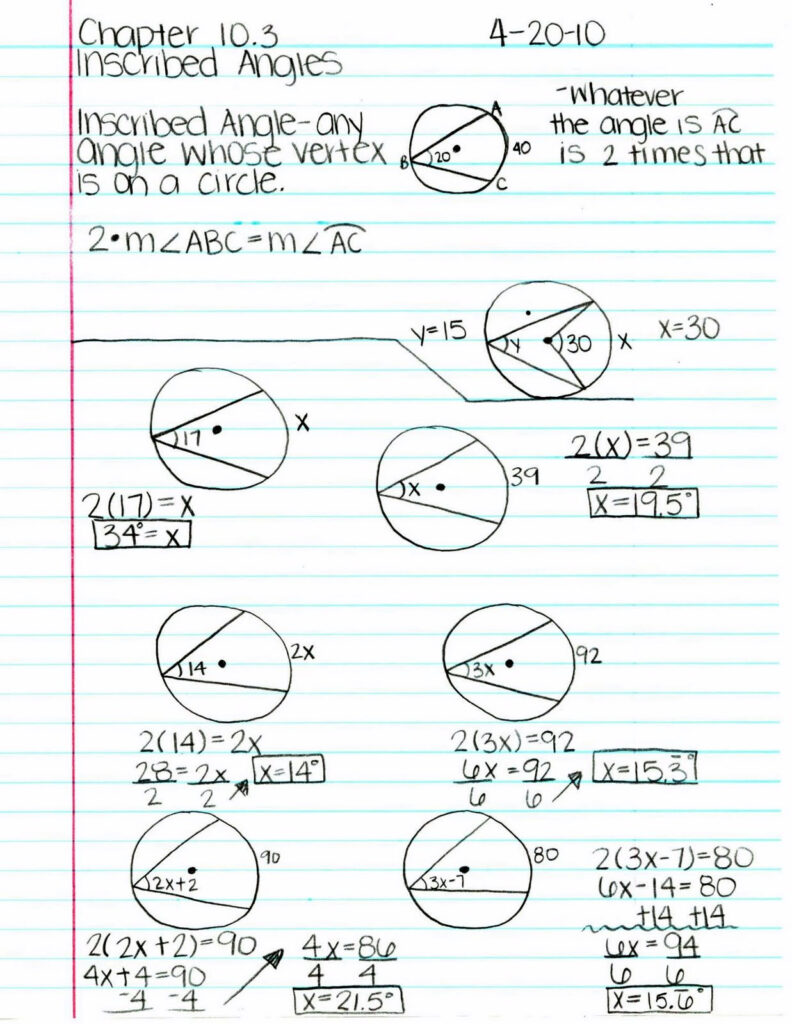 Chapter 10.3
4-20-10
Inscribed Angles
Inscribed Angle-any
angle whose vertex
is on a circle.
A
B
20
40
C
-Whatever
the angle is AC
is 2 times that
2•m∠ABC=m∠AC
y=15
y
30
x
x=30
17
x
2(17)=x
34°=x
x
39
2(x)=39
2 2
x=19.5°
14
2x
2(14)=2x
28=2x
2 2
x=14°
3x
92
2(3x)=92
6x=92
6 6
x=15.3̄°
2x+2
90
2(2x+2)=90
4x+4=90
-4 -4
4x=86
4 4
x=21.5°
3x-7
80
2(3x-7)=80
6x-14=80
+14 +14
6x=94
6 6
x=15.6̄°